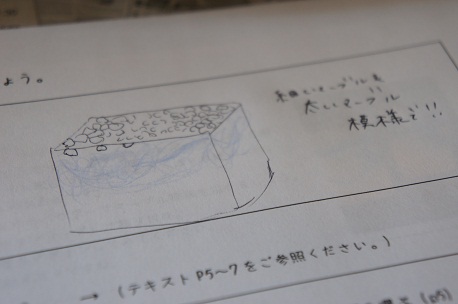 ょう。
細いマーブルと
太いマーブル
模様で!!
→ (テキストP5~7をご参照ください。)
(P5)